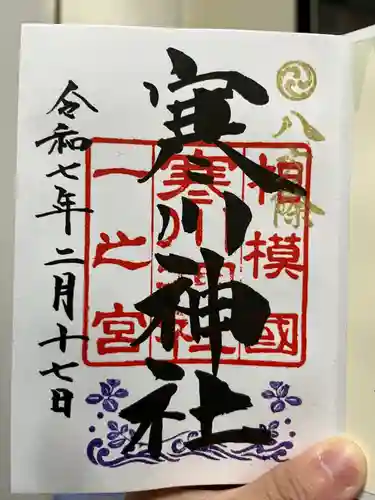 八方除
相模國
寒川神社
一之宮
寒川神社
令和七年二月十七日